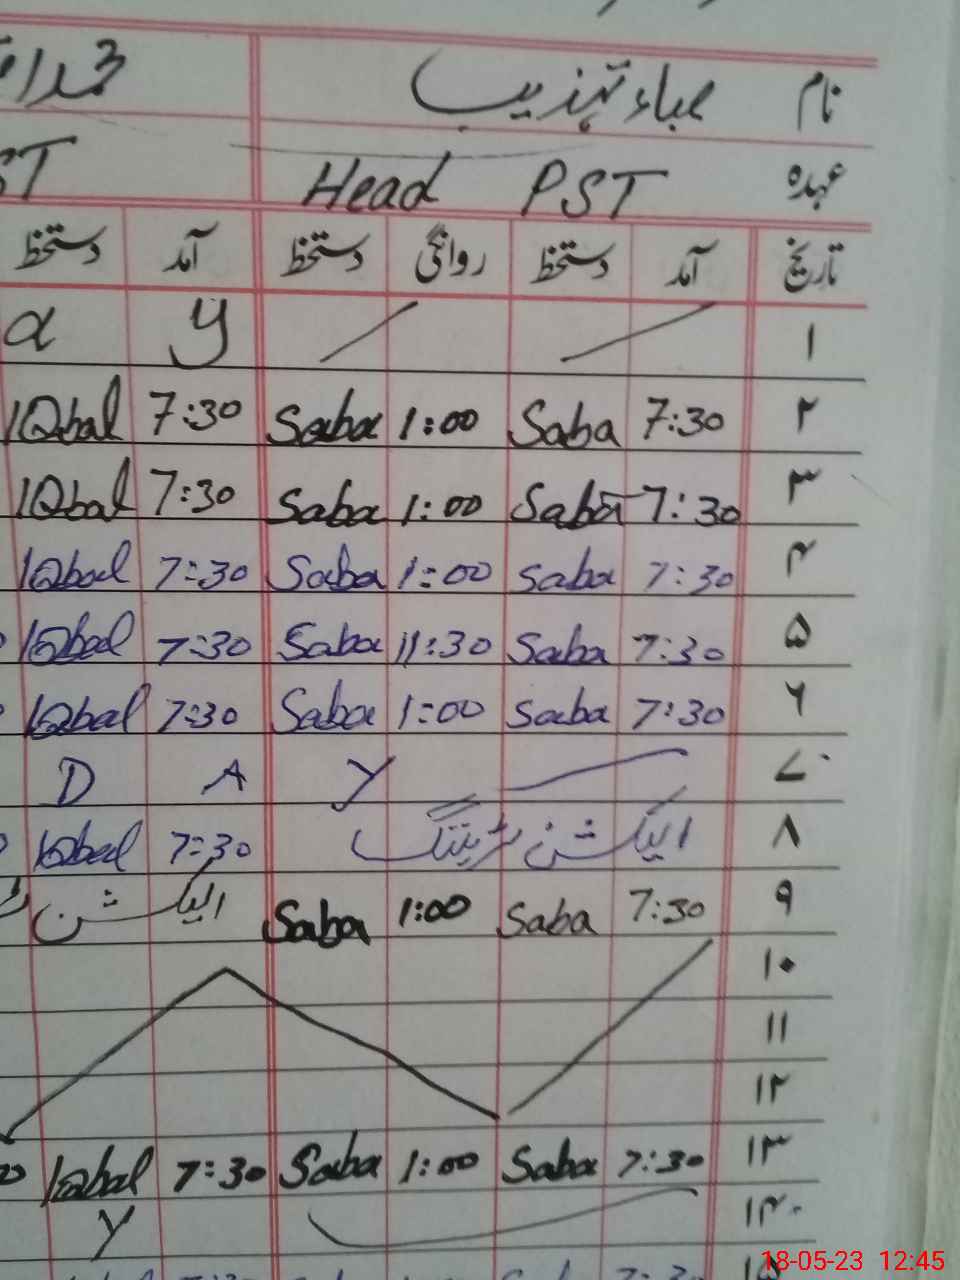 نام صباء تہذیب
عہدہ Head PST
تاریخ آمد دستخط روانگی دستخط آمد دستخط
۱ y a
۲ 7:30 Saba 1:00 Saba 7:30 IQbal
۳ 7:30 Saba 1:00 Saba 7:30 IQbal
۴ 7:30 Saba 1:00 Saba 7:30 IQbal
۵ 7:30 Saba 11:30 Saba 7:30 IQbal
۶ 7:30 Saba 1:00 Saba 7:30 IQbal
۷ y A D
۸ الیکشن ٹریننگ 7:30 IQbal
۹ 7:30 Saba 1:00 Saba الیکشن
۱۰
۱۱
۱۲
۱۳ 7:30 Saba 1:00 Saba 7:30 IQbal
۱۴ y
۱۵
18-05-23 12:45